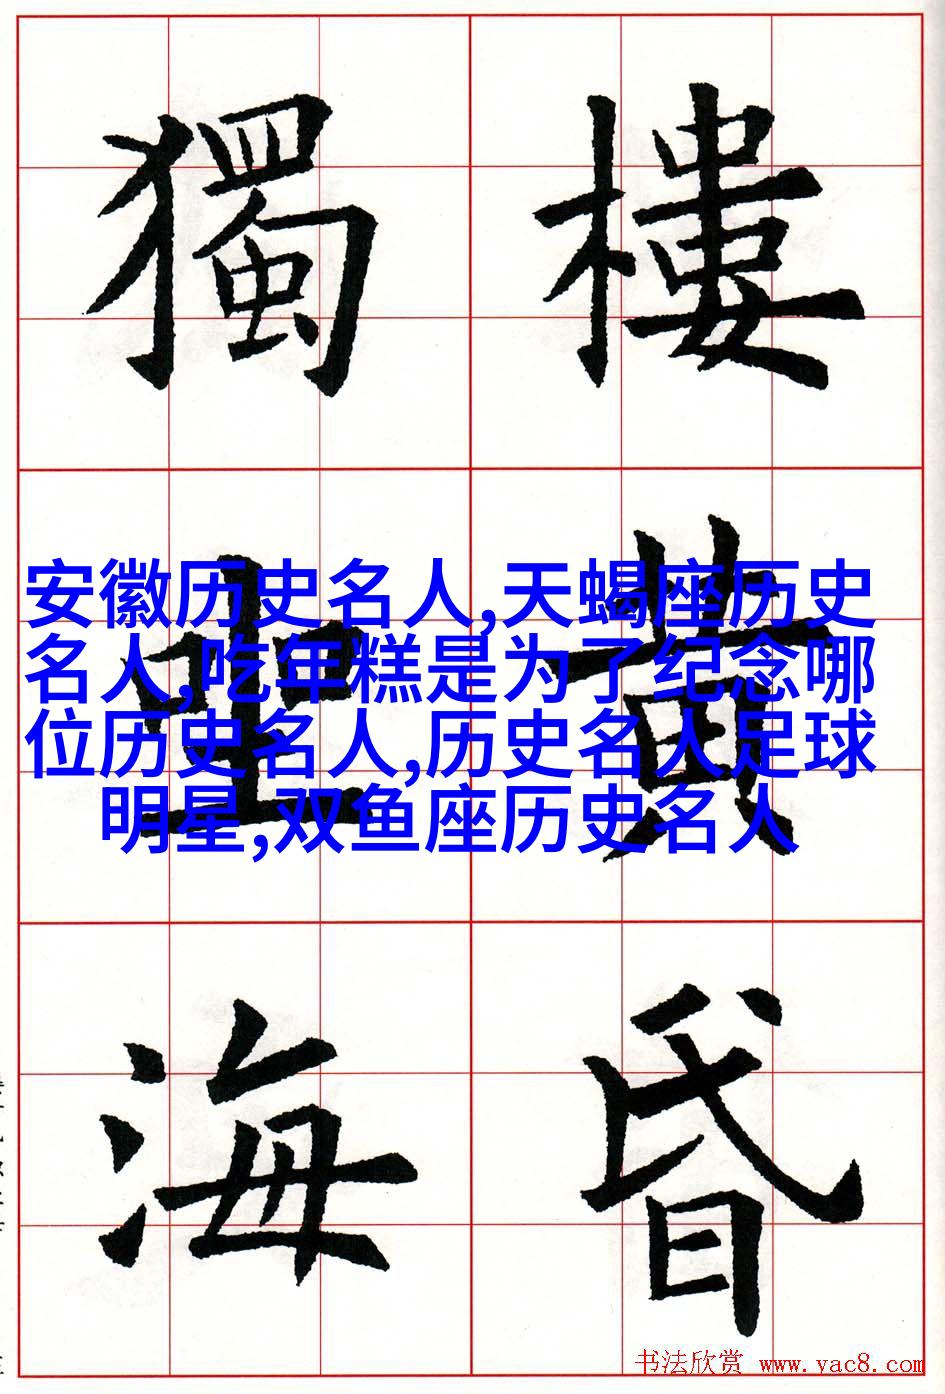 樓黄昏
獨坐海
安徽历史名人,天蝎座历史
名人,吃年糕是为了纪念哪
位历史名人,历史名人足球
明星,双鱼座历史名人
书法欣赏 www.yac8.com